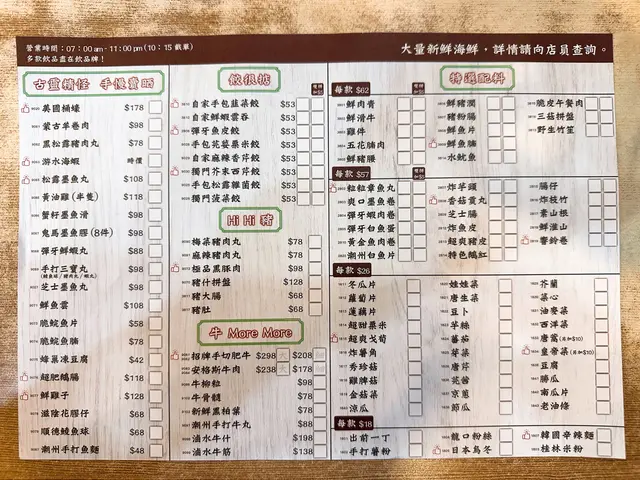 營業時間：07：00 am - 11：00 pm (10：15 截單)
多款飲品盡在飲品牌！
大量新鮮海鮮，詳情請向店員查詢。
古靈精怪 手慢賣晒
英國桶蠔 $178
蒙古羊卷肉 $98
黑松露豬肉丸 $78
游水海蝦 時價
松露墨魚丸 $98
黃油雞 (半隻) $118
蟹籽墨魚滑 $98
鬼馬墨魚膠 (8件) $98
彈牙鮮蝦丸 $88
手打三寶丸 $98
芝士墨魚丸 $98
鮮魚雲 $108
脆鯇魚片 $58
脆鯇魚腩 $78
蜂巢凍豆腐 $42
超肥鵝腸 $118
鮮雞子 $128
滋陰花膠仔 $68
順德鯪魚球 $68
潮州手打魚麵 $48
餃很掂
自家手包韮菜餃 $53
自家鮮蝦雲吞 $53
彈牙魚皮餃 $53
手包芫荽粟米餃 $53
自家麻辣香芹餃 $53
獨門芥末西芹餃 $53
手包松露雜菌餃 $53
獨門菠菜餃 $53
Hi Hi 豬
梅菜豬肉丸 $78
麻辣豬肉丸 $78
極品黑豚肉 $98
豬什拼盤 $128
豬大腸 $68
豬肚 $68
牛 More More
招牌手切肥牛 $298 大 $208
安格斯牛肉 $238 大 $178
牛柳粒 $98
牛骨髓 $78
新鮮黑柏葉 $78
潮州手打牛丸 $88
滷水牛什 $198
滷水牛筋 $138
特選配料
每款 $62
鮮肉青
鮮滑牛
雞件
五花腩肉
鮮豬腰
鮮豬潤
豬粉腸
鮮魚片
鮮魚腩
水魷魚
脆皮午餐肉
三菇拼盤
野生竹笙
每款 $57
粒粒章魚丸
爽口墨魚卷
彈牙蝦肉卷
彈牙白魚蛋
黃金魚肉卷
潮州白魚片
炸芋頭
香菇貢丸
芝士腸
炸魚腐
超爽豬皮
特色鵝紅
腸仔
炸枝竹
素山根
鮮淮山
響鈴卷
每款 $26
冬瓜片
蘿蔔片
蓮藕片
超甜粟米
超爽戈筍
炸薯角
秀珍菇
雞髀菇
金菇菜
涼瓜
娃娃菜
唐生菜
豆卜
芋絲
蕃茄
芽菜
唐芹
芫茜
京蔥
節瓜
芥蘭
菜心
油麥菜
西洋菜
唐蒿 (另加$10)
皇帝菜 (另加$10)
豆腐
勝瓜
南瓜片
老油條
每款 $18
出前一丁
手打薯粉
龍口粉絲
日本烏冬
韓國辛辣麵
桂林米粉